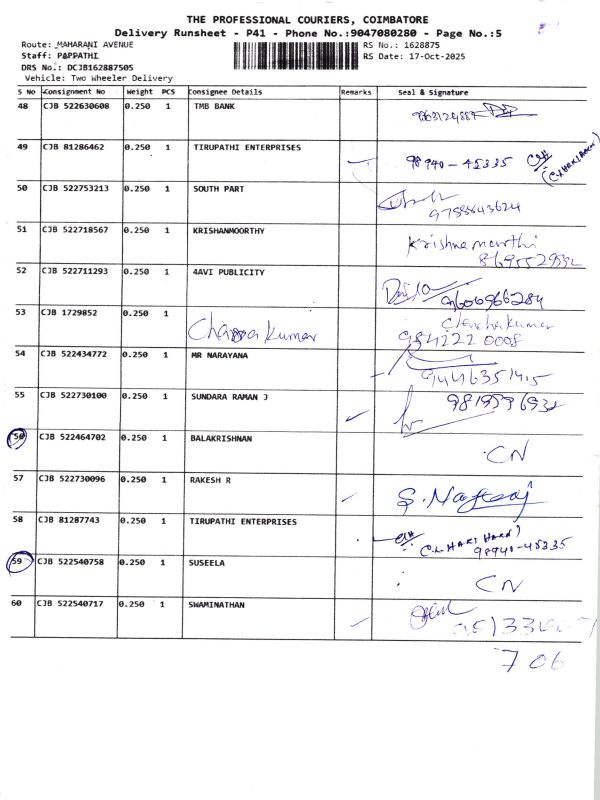 THE PROFESSIONAL COURIERS, COIMBATORE
Delivery Runsheet - P41 - Phone No.:9047080280 - Page No.:5
Route: MAHARANI AVENUE RS No.: 1628875
Staff: PAPPATHI RS Date: 17-Oct-2025
DRS No.: DCJB162887505
Vehicle: Two Wheeler Delivery
S No Consignment No Weight PCS Consignee Details Remarks Seal & Signature
48 CJB 522630608 0.250 1 TMB BANK
49 CJB 81286462 0.250 1 TIRUPATHI ENTERPRISES 98940-45335
50 CJB 522753213 0.250 1 SOUTH PART 9788843624
51 CJB 522718567 0.250 1 KRISHANMOORTHY Krishnamurthi
8695529532
52 CJB 522711293 0.250 1 4AVI PUBLICITY 9606966284
53 CJB 1729852 0.250 1 Chandrakumar
984222 0008
54 CJB 522434772 0.250 1 MR NARAYANA
55 CJB 522730100 0.250 1 SUNDARA RAMAN J
56 CJB 522464702 0.250 1 BALAKRISHNAN CN
57 CJB 522730096 0.250 1 RAKESH R S. Nagaraj
58 CJB 81287743 0.250 1 TIRUPATHI ENTERPRISES (C.L HARI HARAN)
98940-45335
59 CJB 522540758 0.250 1 SUSEELA CN
60 CJB 522540717 0.250 1 SWAMINATHAN
706